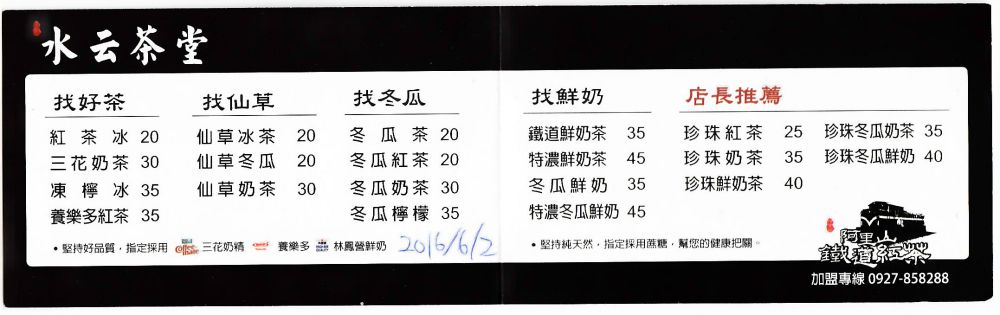 水云茶堂
找好茶
紅茶冰 20
三花奶茶 30
凍檸冰 35
養樂多紅茶 35
找仙草
仙草冰茶 20
仙草冬瓜 20
仙草奶茶 30
找冬瓜
冬瓜茶 20
冬瓜紅茶 20
冬瓜奶茶 30
冬瓜檸檬 35
•堅持好品質,指定採用 三花奶精 養樂多 林鳳營鮮奶
2016/6/2
找鮮奶
鐵道鮮奶茶 35
特濃鮮奶茶 45
冬瓜鮮奶 35
特濃冬瓜鮮奶 45
店長推薦
珍珠紅茶 25
珍珠奶茶 35
珍珠鮮奶茶 40
珍珠冬瓜奶茶 35
珍珠冬瓜鮮奶 40
•堅持純天然,指定採用蔗糖,幫您的健康把關。
阿里山
鐵道紅茶
加盟專線 0927-858288